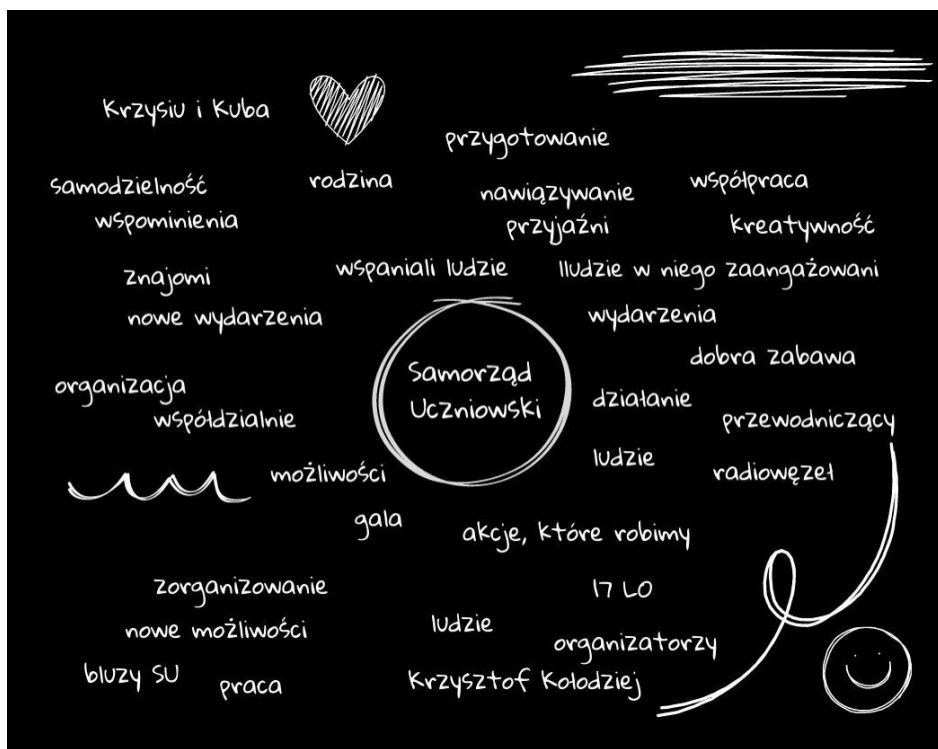 Krzysiu i Kuba
przygotowanie
samodzielność
rodzina
nawiązywanie
przyjaźni
współpraca
wspominienia
kreatywność
znajomi
wspaniali ludzie
lludzie w niego zaangażowani
nowe wydarzenia
wydarzenia
dobra zabawa
Samorząd
Uczniowski
organizacja
działanie
współdzialnie
przewodniczący
możliwości
ludzie
radiowęzeł
gala
akcje, które robimy
zorganizowanie
17 LO
nowe możliwości
ludzie
organizatorzy
bluzy SU
praca
Krzysztof Kołodziej